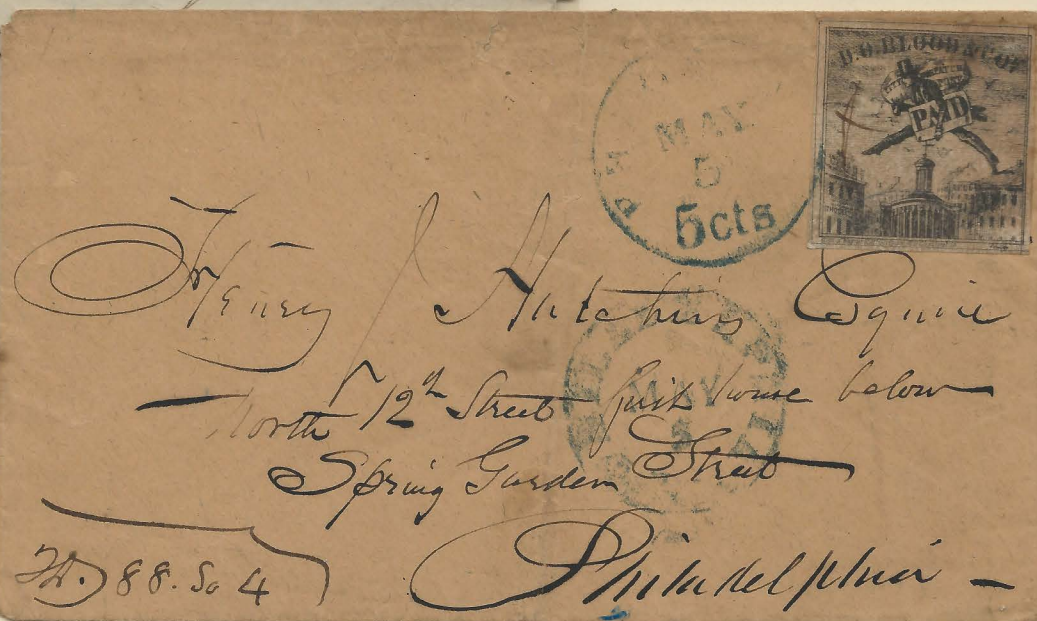 D.O. BLOOD & CO.
PAID
MAY
5
5cts
Henry J Hutchins Esquire
North 12th Street first house below
MAY
Spring Garden Street
88. So 4
Philadelphia